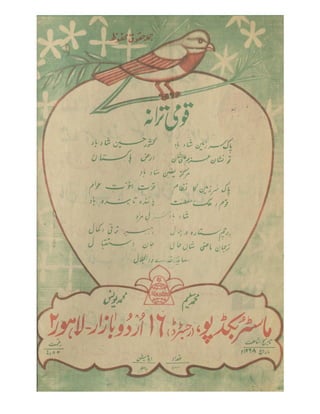 جملہ حقوق محفوظ
قومی ترانہ
پاک سرزمین شاد باد کشور حسین شاد باد
تو نشان عزم عالی شان ارض پاکستان
مرکز یقین شاد باد
پاک سرزمین کا نظام قوت اخوت عوام
قوم، ملک، سلطنت پائندہ تابندہ باد
شاد باد منزل مراد
پرچم ستارہ و ہلال رہبر ترقی و کمال
ترجمان ماضی شان حال جان استقبال
سایۂ خدائے ذوالجلال
محمد یونس
ماسٹر بکڈپو، (رجسٹرڈ) ۱۶ اُردو بازار - لاہور ۲
تعداد